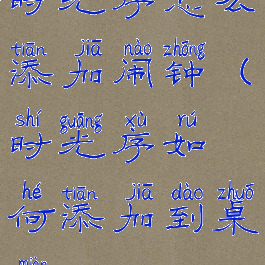 时光序怎么
tiān jiā nào zhōng
添加闹钟（
shí guāng xù rú
时光序如
hé tiān jiā dào zhuō
何添加到桌
miàn